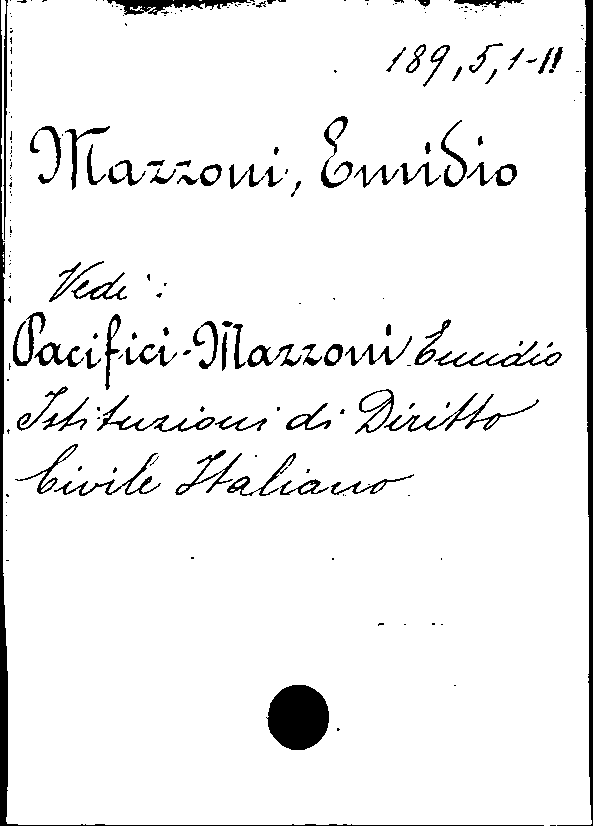 189, 5, 1-11
Mazzoni, Emidio
Vedi :
Pacifici-Mazzoni Emidio
Istituzioni di Diritto
Civile Italiano